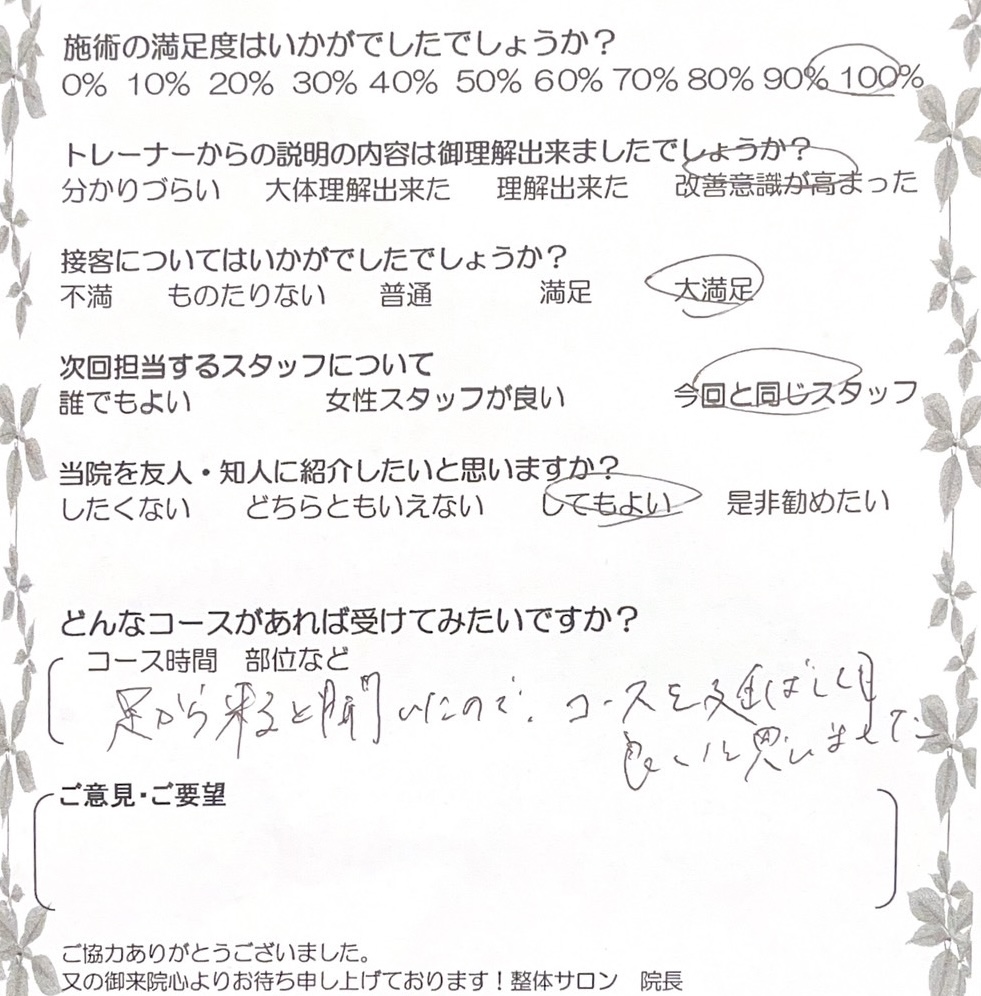 施術の満足度はいかがでしたでしょうか？
0% 10% 20% 30% 40% 50% 60% 70% 80% 90% 100%
トレーナーからの説明の内容は御理解出来ましたでしょうか？
分かりづらい 大体理解出来た 理解出来た 改善意識が高まった
接客についてはいかがでしたでしょうか？
不満 ものたりない 普通 満足 大満足
次回担当するスタッフについて
誰でもよい 女性スタッフが良い 今回と同じスタッフ
当院を友人・知人に紹介したいと思いますか？
したくない どちらともいえない してもよい 是非勧めたい
どんなコースがあれば受けてみたいですか？
コース時間 部位など
足から来ると聞いたので、コースを延ばして
良くと思いました
ご意見・ご要望
ご協力ありがとうございました。
又の御来院心よりお待ち申し上げております！整体サロン 院長